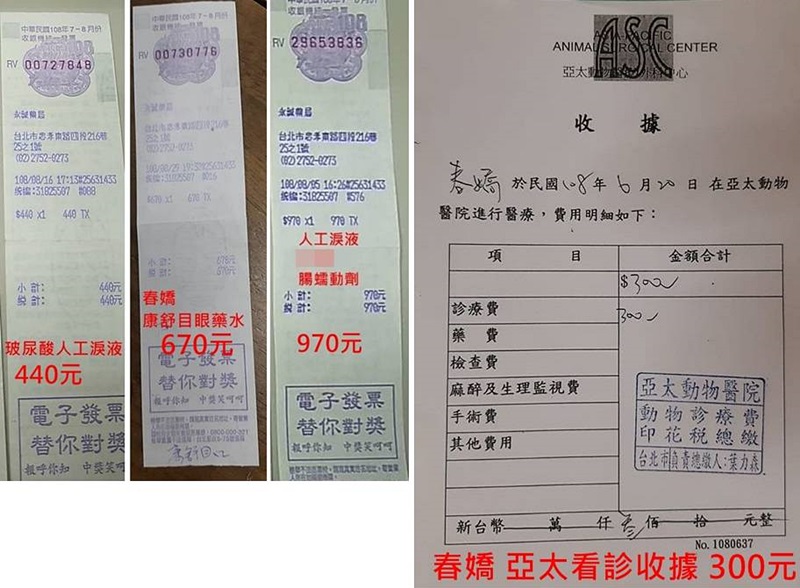 中華民國108年7-8月份
收銀機統一發票
RV 00727848
永誠藥局
台北市忠孝東路四段216巷
25之1號
(02)2752-0273
108/08/16 17:13#25631433
統編:31825507 #088
$440 x1 440 TX
小計: 440元
總計: 440元
玻尿酸人工淚液
440元
電子發票
替你對獎
報呼你知 中獎笑呵呵
中華民國108年7-8月份
收銀機統一發票
RV 00730776
永誠藥局
台北市忠孝東路四段216巷
25之1號
(02)2752-0273
108/08/29 17:32#25631433
統編:31825507 #016
$670 x1 670 TX
小計: 670元
總計: 670元
春嬌
康舒目眼藥水
670元
電子發票
替你對獎
報呼你知 中獎笑呵呵
康舒目
RV 29653836
永誠藥局
台北市忠孝東路四段216巷
25之1號
(02)2752-0273
108/08/05 16:26#25631433
統編:31825507 #576
$970 x1 970 TX
人工淚液
腸蠕動劑
小計: 970元
總計: 970元
970元
電子發票
替你對獎
報呼你知 中獎笑呵呵
ASC
ANIMAL SURGICAL CENTER
收據
春嬌 於民國108年6月20日在亞太動物
醫院進行醫療,費用明細如下:
項目 金額合計
$300
診療費 300
藥費
檢查費
麻醉及生理監視費
手術費
其他費用
亞太動物醫院
動物診療費
印花稅總繳
台北市負責總繳人:葉力森
新台幣 萬 仟 叁佰 拾 元整
No. 1080637
春嬌 亞太看診收據 300元